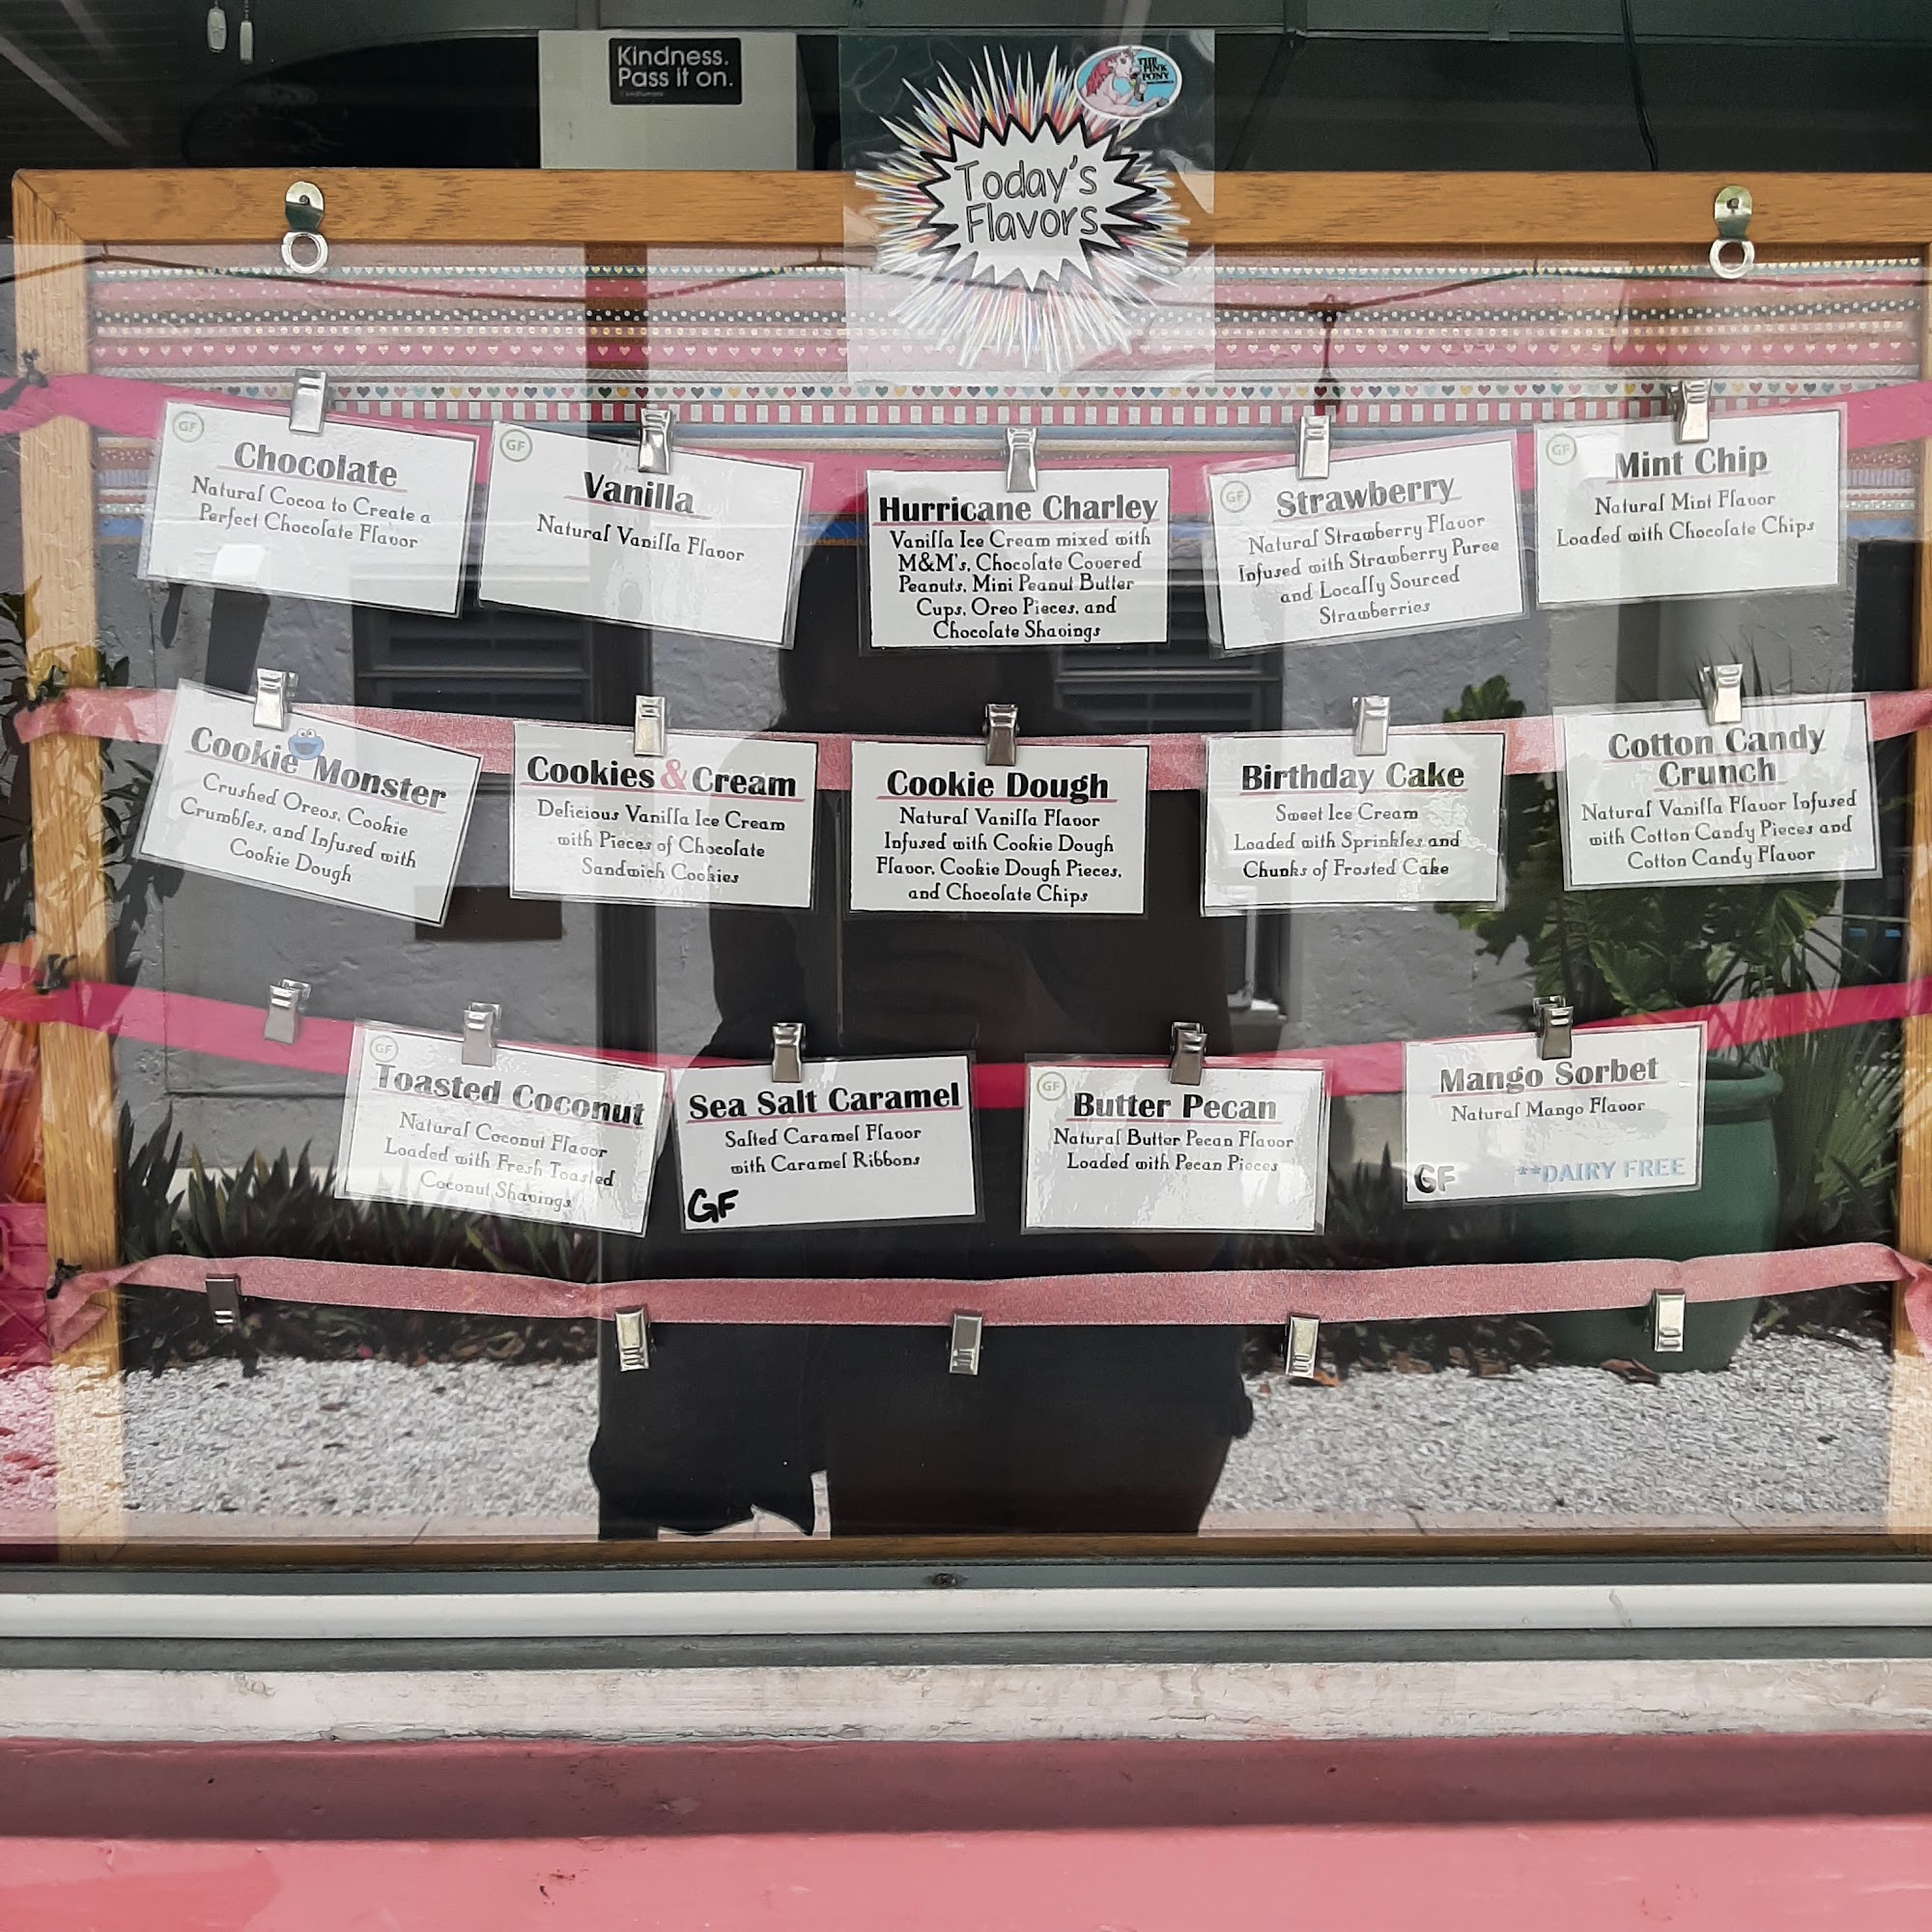 Kindness.
Pass it on.
THE
PINK
PONY
Today's
Flavors
GF
Chocolate
Natural Cocoa to Create a
Perfect Chocolate Flavor
GF
Vanilla
Natural Vanilla Flavor
Hurricane Charley
Vanilla Ice Cream mixed with
M&M's, Chocolate Covered
Peanuts, Mini Peanut Butter
Cups, Oreo Pieces, and
Chocolate Shavings
GF
Strawberry
Natural Strawberry Flavor
Infused with Strawberry Puree
and Locally Sourced
Strawberries
GF
Mint Chip
Natural Mint Flavor
Loaded with Chocolate Chips
Cookie Monster
Crushed Oreos, Cookie
Crumbles, and Infused with
Cookie Dough
Cookies & Cream
Delicious Vanilla Ice Cream
with Pieces of Chocolate
Sandwich Cookies
Cookie Dough
Natural Vanilla Flavor
Infused with Cookie Dough
Flavor, Cookie Dough Pieces,
and Chocolate Chips
Birthday Cake
Sweet Ice Cream
Loaded with Sprinkles and
Chunks of Frosted Cake
Cotton Candy
Crunch
Natural Vanilla Flavor Infused
with Cotton Candy Pieces and
Cotton Candy Flavor
GF
Toasted Coconut
Natural Coconut Flavor
Loaded with Fresh Toasted
Coconut Shavings
Sea Salt Caramel
Salted Caramel Flavor
with Caramel Ribbons
GF
GF
Butter Pecan
Natural Butter Pecan Flavor
Loaded with Pecan Pieces
Mango Sorbet
Natural Mango Flavor
GF **DAIRY FREE